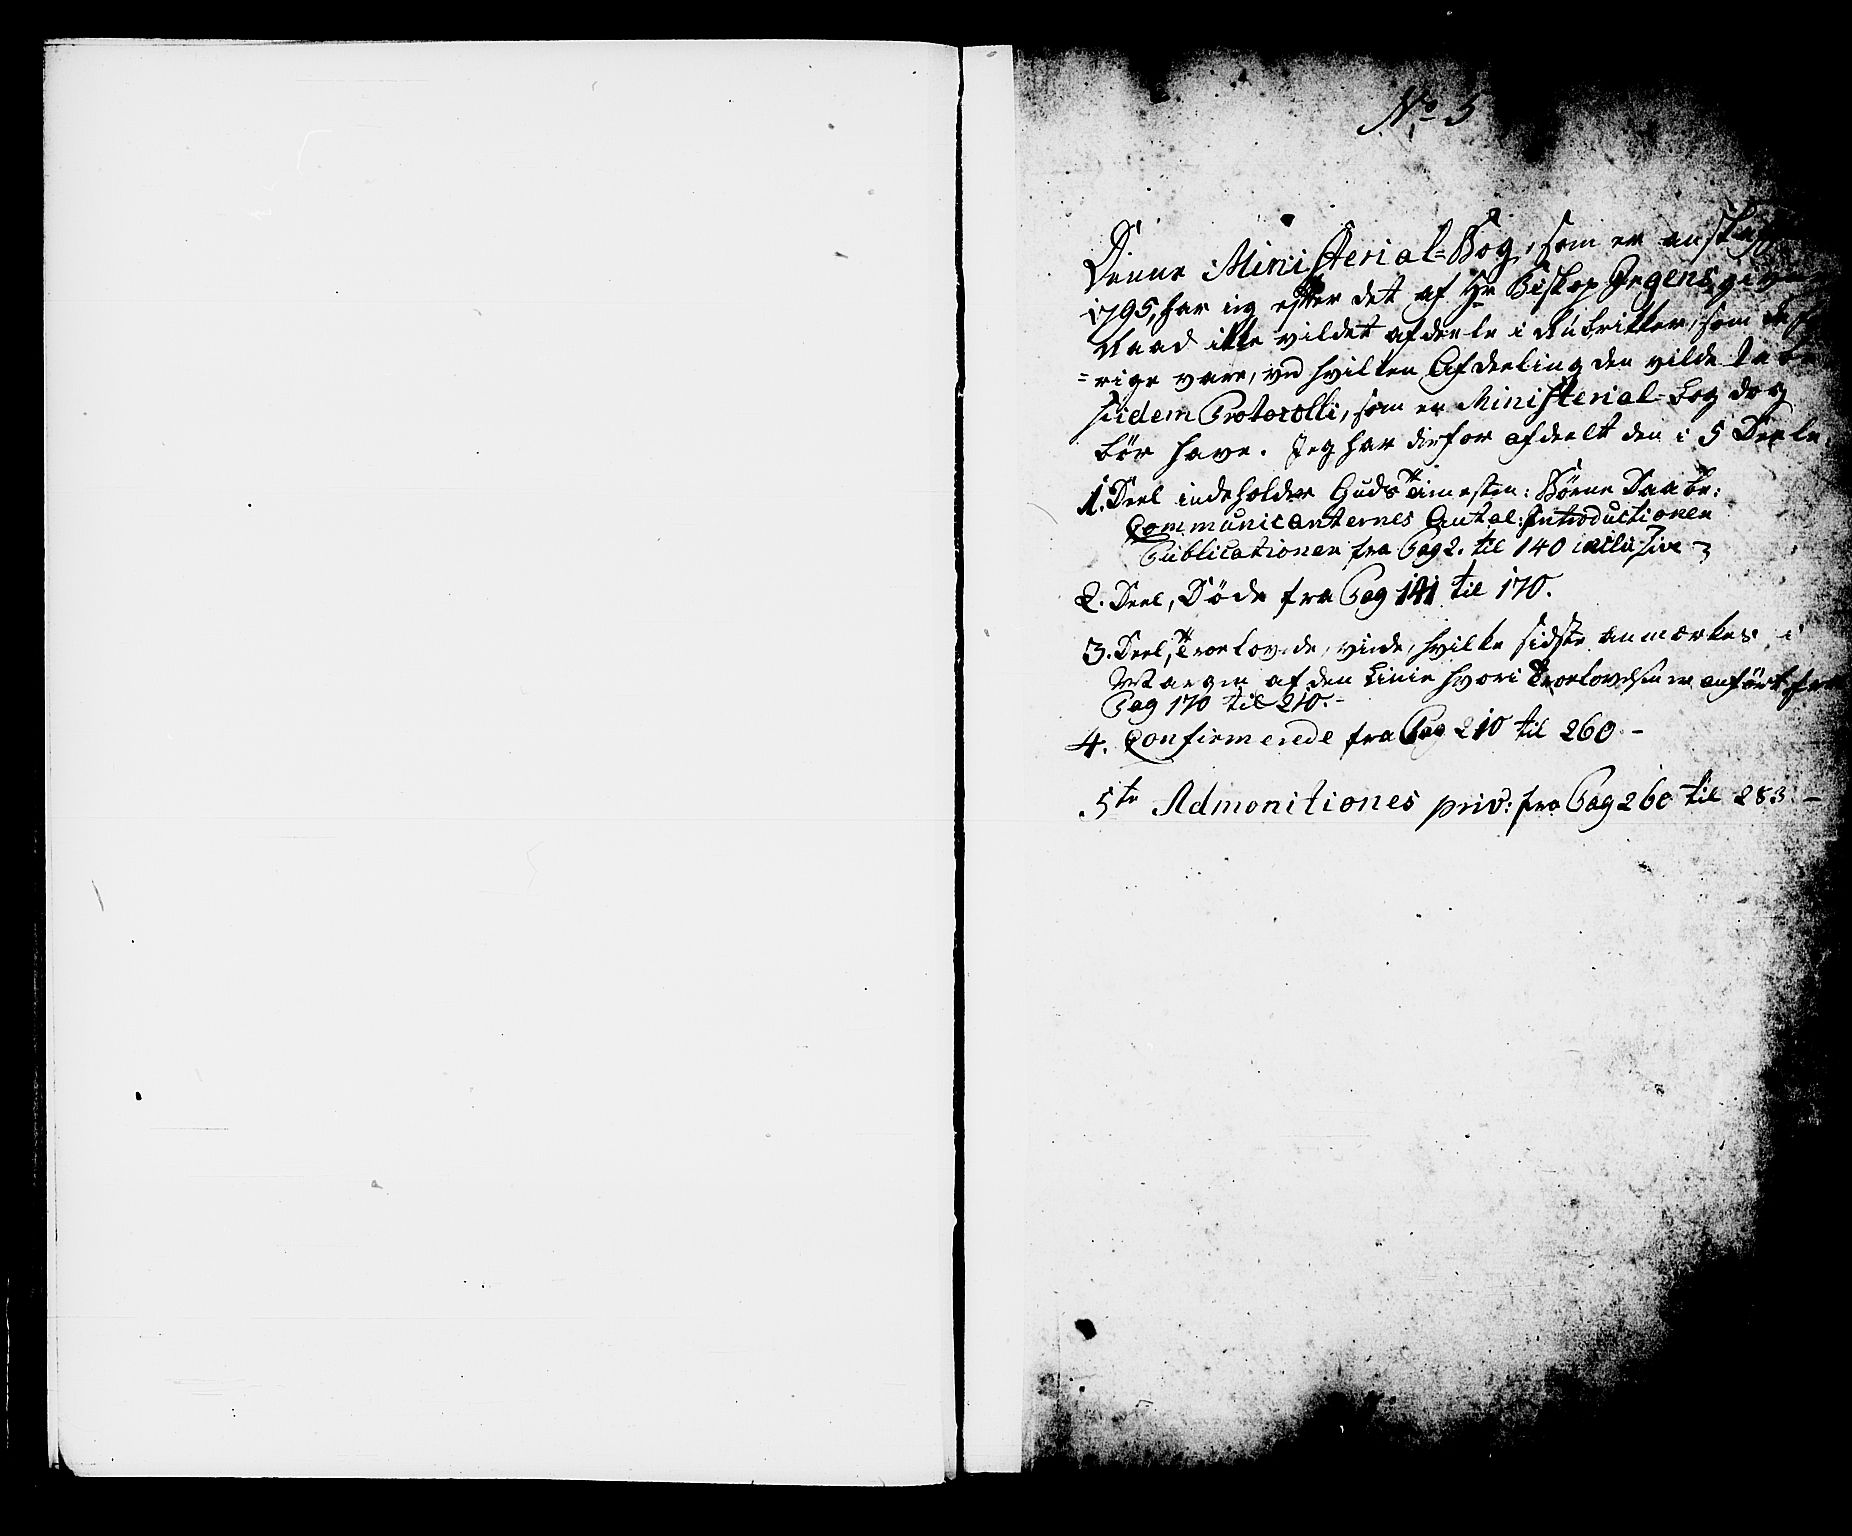 No 5
Denne Ministerial-Bog, som er anskaff
1795, har jeg efter det af Hr Biskop Irgens given
Raad ikke vildet afdeele i Rubrikker, som de fo
=rige vare, ved hvilken Afdeeling den vilde tabe
fidem Protocolli, som en Ministerial-bog dog
bör have. Jeg har derfor afdeelt den i 5 Deele.
1. Deel indeholder Guds Tienesten: Börne Daabe:
Communicanternes Antal: Introductioner
Publicationer fra Pag 2. til 140 inclusive
2. Deel, Döde fra Pag 141 til 170.
3. Deel, Troelovede, viede, hvilke sidste anmærkes i
Margen af den Linie hvori Troelovelsen er anfört fra
Pag 170 til 210.-
4. Confirmerede fra Pag 210 til 260 -
5te Admonitiones priv: fra Pag 260 til 283 -